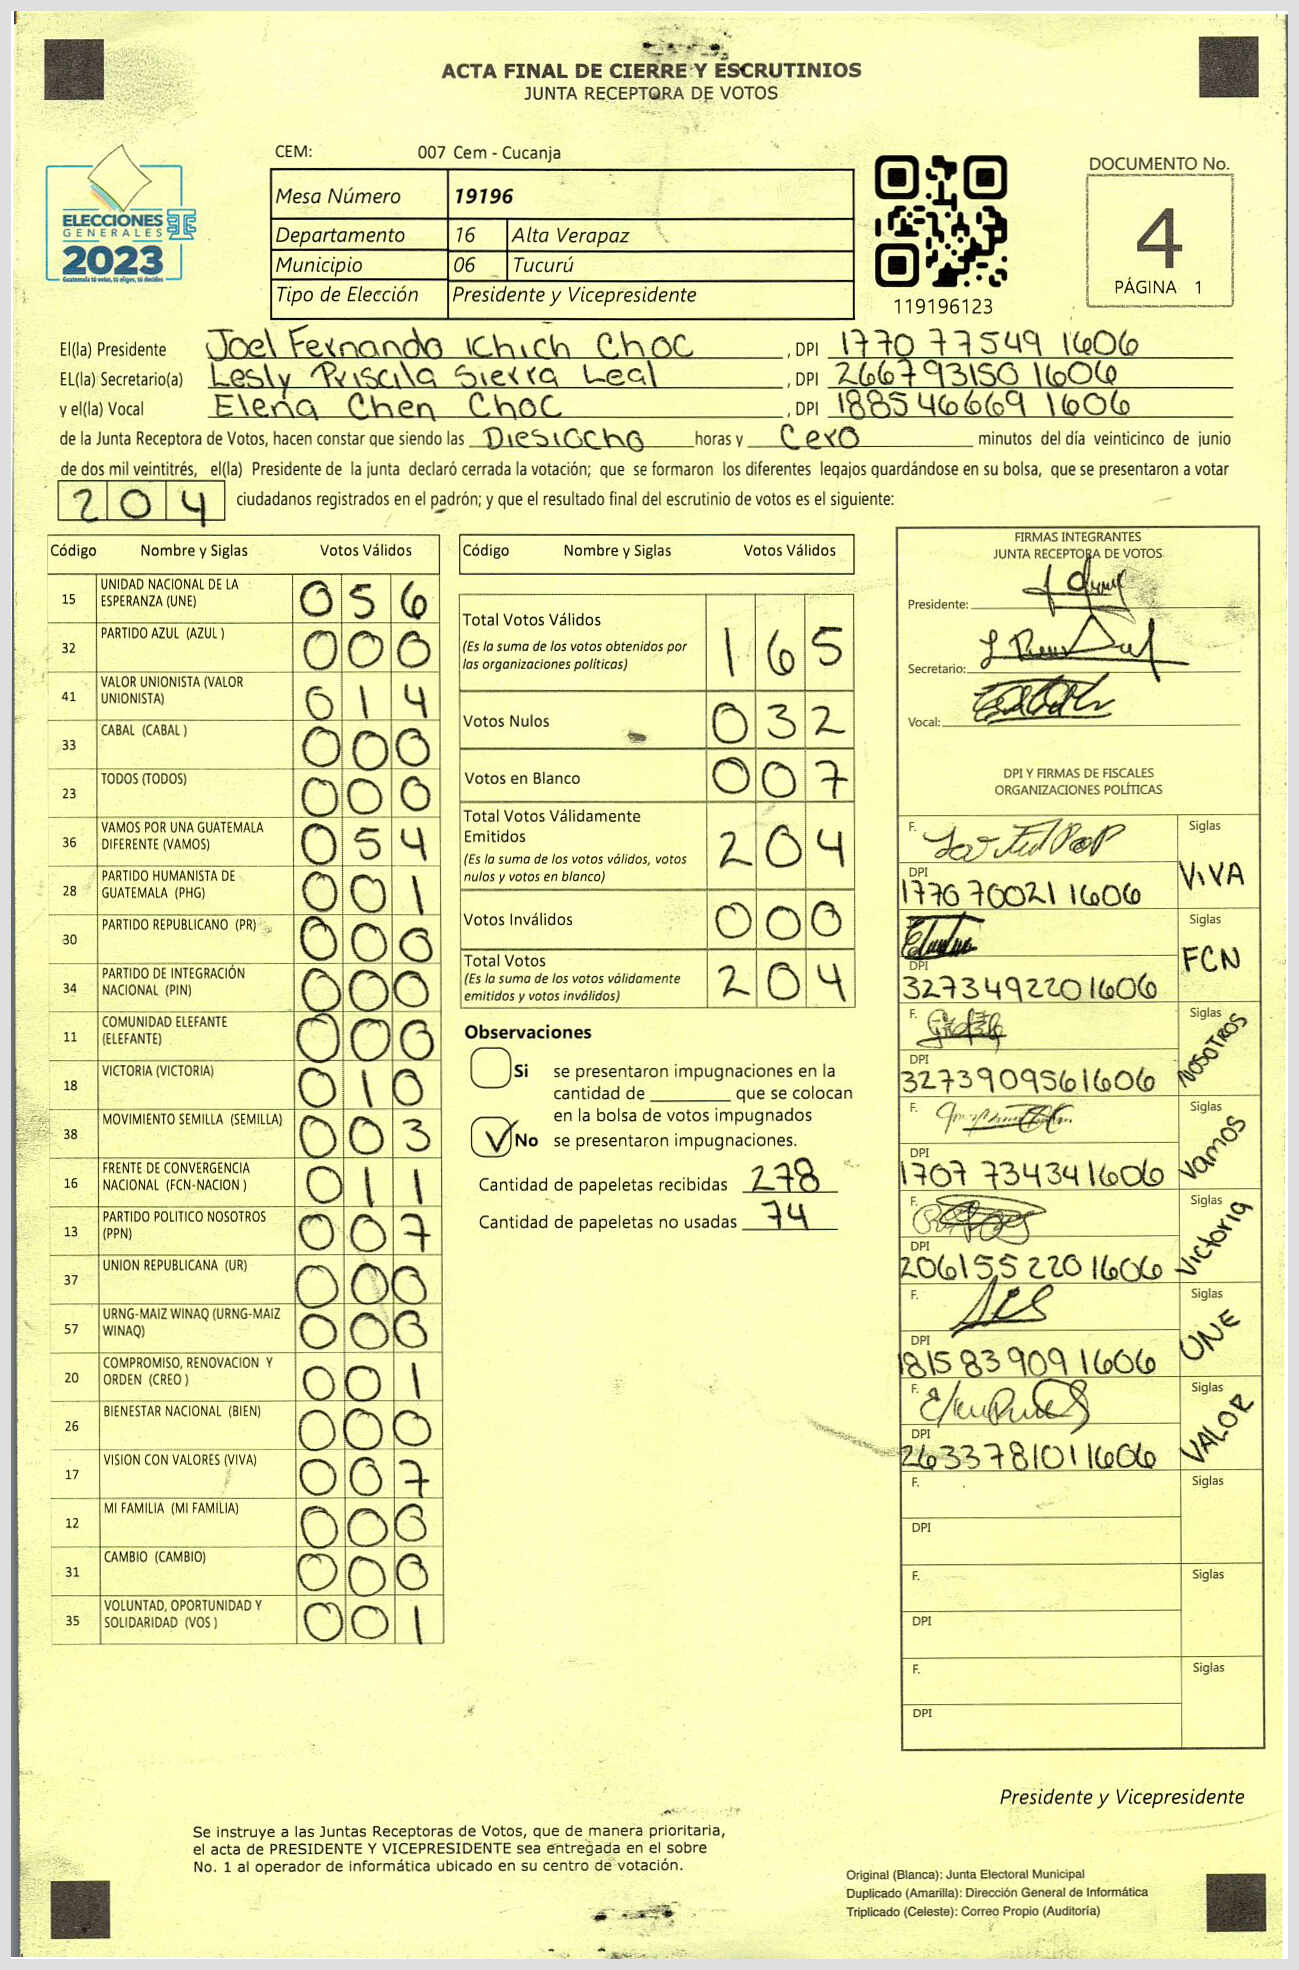 ACTA FINAL DE CIERRE Y ESCRUTINIOS
JUNTA RECEPTORA DE VOTOS
ELECCIONES
GENERALES
2023
Guatemala tú votas, tú eliges, tú decides
CEM: 007 Cem - Cucanja
Mesa Número 19196
Departamento 16 Alta Verapaz
Municipio 06 Tucurú
Tipo de Elección Presidente y Vicepresidente
119196123
DOCUMENTO No.
4
PÁGINA 1
El(la) Presidente Joel Fernando Ichich Choc , DPI 1770 77549 1606
EL(la) Secretario(a) Lesly Priscila Sierra Leal , DPI 266793150 1606
y el(la) Vocal Elena Chen Choc , DPI 188546669 1606
de la Junta Receptora de Votos, hacen constar que siendo las Diesiocho horas y Cero minutos del día veinticinco de junio
de dos mil veintitrés, el(la) Presidente de la junta declaró cerrada la votación; que se formaron los diferentes legajos guardándose en su bolsa, que se presentaron a votar
204 ciudadanos registrados en el padrón; y que el resultado final del escrutinio de votos es el siguiente:
Código Nombre y Siglas Votos Válidos
15 UNIDAD NACIONAL DE LA ESPERANZA (UNE) 056
32 PARTIDO AZUL (AZUL ) 000
41 VALOR UNIONISTA (VALOR UNIONISTA) 014
33 CABAL (CABAL ) 000
23 TODOS (TODOS) 000
36 VAMOS POR UNA GUATEMALA DIFERENTE (VAMOS) 054
28 PARTIDO HUMANISTA DE GUATEMALA (PHG) 001
30 PARTIDO REPUBLICANO (PR) 000
34 PARTIDO DE INTEGRACIÓN NACIONAL (PIN) 000
11 COMUNIDAD ELEFANTE (ELEFANTE) 000
18 VICTORIA (VICTORIA) 010
38 MOVIMIENTO SEMILLA (SEMILLA) 003
16 FRENTE DE CONVERGENCIA NACIONAL (FCN-NACION ) 011
13 PARTIDO POLITICO NOSOTROS (PPN) 007
37 UNION REPUBLICANA (UR) 000
57 URNG-MAIZ WINAQ (URNG-MAIZ WINAQ) 000
20 COMPROMISO, RENOVACION Y ORDEN (CREO ) 001
26 BIENESTAR NACIONAL (BIEN) 000
17 VISION CON VALORES (VIVA) 007
12 MI FAMILIA (MI FAMILIA) 000
31 CAMBIO (CAMBIO) 000
35 VOLUNTAD, OPORTUNIDAD Y SOLIDARIDAD (VOS ) 001
Código Nombre y Siglas Votos Válidos
Total Votos Válidos 165
(Es la suma de los votos obtenidos por
las organizaciones políticas)
Votos Nulos 032
Votos en Blanco 007
Total Votos Válidamente
Emitidos 204
(Es la suma de los votos válidos, votos
nulos y votos en blanco)
Votos Inválidos 000
Total Votos 204
(Es la suma de los votos válidamente
emitidos y votos inválidos)
Observaciones
Si se presentaron impugnaciones en la
cantidad de ________ que se colocan
en la bolsa de votos impugnados
No se presentaron impugnaciones.
Cantidad de papeletas recibidas 278
Cantidad de papeletas no usadas 74
FIRMAS INTEGRANTES
JUNTA RECEPTORA DE VOTOS
Presidente:
Secretario:
Vocal:
DPI Y FIRMAS DE FISCALES
ORGANIZACIONES POLÍTICAS
F. Siglas
DPI VIVA
1770 70021 1606
Siglas
DPI FCN
3273492201606
F. Siglas
DPI NOSOTROS
3273909561606
F. Siglas
DPI Vamos
1707 734341606
F. Siglas
DPI Victoria
206155220 1606
F. Siglas
DPI UNE
181583909 1606
F. Siglas
DPI VALOR
2633781011606
F. Siglas
DPI
F. Siglas
DPI
F. Siglas
DPI
Presidente y Vicepresidente
Se instruye a las Juntas Receptoras de Votos, que de manera prioritaria,
el acta de PRESIDENTE Y VICEPRESIDENTE sea entregada en el sobre
No. 1 al operador de informática ubicado en su centro de votación.
Original (Blanca): Junta Electoral Municipal
Duplicado (Amarilla): Dirección General de Informática
Triplicado (Celeste): Correo Propio (Auditoría)